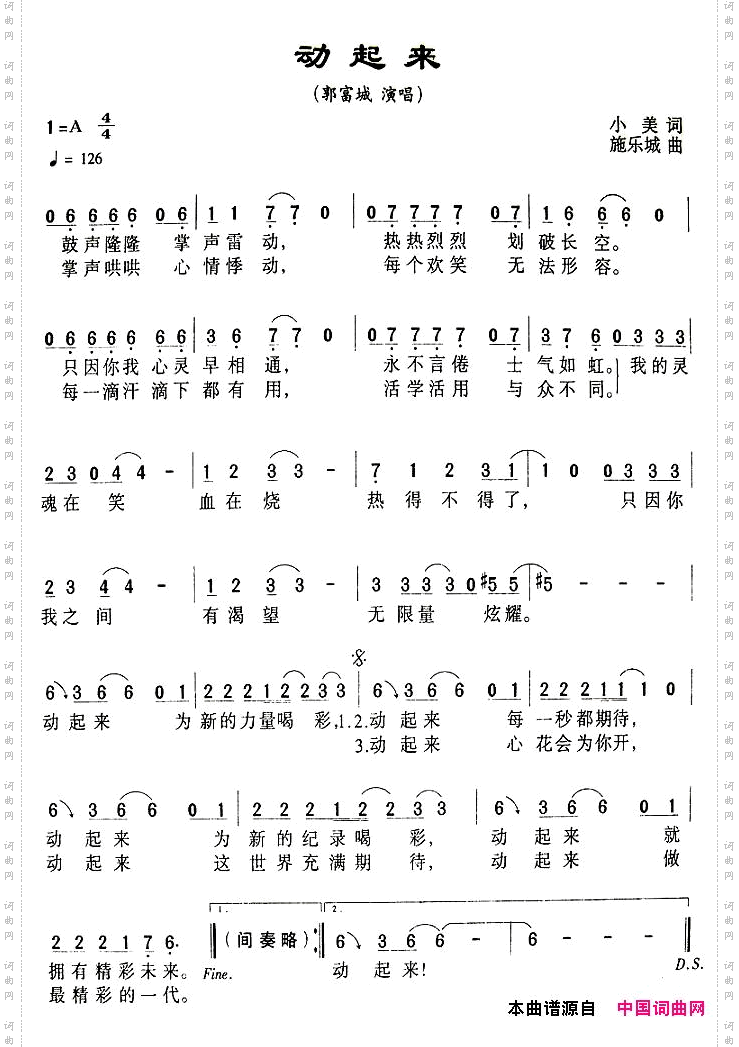 动起来
(郭富城 演唱)
1=A 4/4
小美词
♩= 126
施乐城 曲
0 6 6 6 6 0 6 | 1 1 7 7 0 | 0 7 7 7 7 0 7 | 1 6 6 6 0 |
鼓声隆隆 掌声雷动, 热热烈烈 划破长空。
掌声哄哄 心情悸动, 每个欢笑 无法形容。
0 6 6 6 6 6 6 | 3 6 7 7 0 | 0 7 7 7 7 0 7 | 3 7 6 0 3 3 3 |
只因你我 心灵早相通, 永不言倦 士气如虹。我的灵
每一滴汗 滴下都有用, 活学活用 与众不同。
2 3 0 4 4 - | 1 2 3 3 - | 7 1 2 3 1 | 1 0 0 3 3 3 |
魂在笑 血在烧 热得不得了, 只因你
2 3 4 4 - | 1 2 3 3 - | 3 3 3 3 3 0 #5 5 | #5 - - - |
我之间 有渴望 无限量 炫耀。
6 3 6 6 0 1 | 2 2 2 1 2 2 2 3 3 | 6 3 6 6 0 1 | 2 2 2 1 1 1 0 |
动起来 为新的力量喝彩,1.2.动起来 每一秒都期待,
3.动起来 心花会为你开,
6 3 6 6 0 1 | 2 2 2 1 2 2 2 3 | 6 3 6 6 0 1 |
动起来 为新的纪录喝彩, 动起来 就
动起来 这世界充满期待, 动起来 做
1. 2.
2 2 2 1 7 6. (间奏略) 6 3 6 6 - | 6 - - -
拥有精彩未来。 Fine. 动起来! D.S.
最精彩的一代。
本曲谱源自 中国词曲网